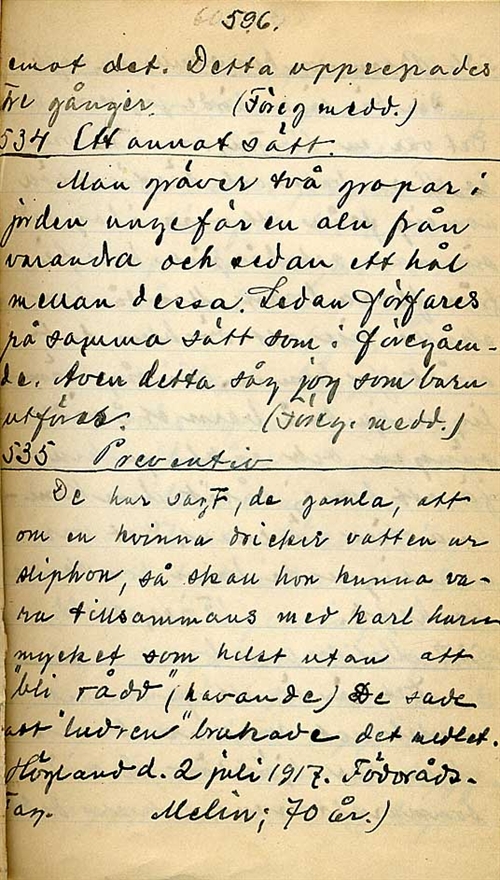 596.
emot det. Detta upprepades
tre gånger. (Föreg medd.)
534 Ett annat sätt.
Man gräver två gropar i
jorden ungefär en aln från
varandra och sedan ett hål
mellan dessa. Sedan förfares
på samma sätt som i föregåen-
de. Även detta såg jag som barn
utföras. (Föreg. medd.)
535 Preventiv
De har sagt, de gamla, att
om en kvinna dricker vatten ur
sliphon, så skall hon kunna va-
ra tillsammans med karl huru
mycket som helst utan att
"bli rådd" (havande) De sade
att "ludren" brukade det medlet.
Högland d. 2 juli 1917. Födoråds-
Melin; 70 år.)